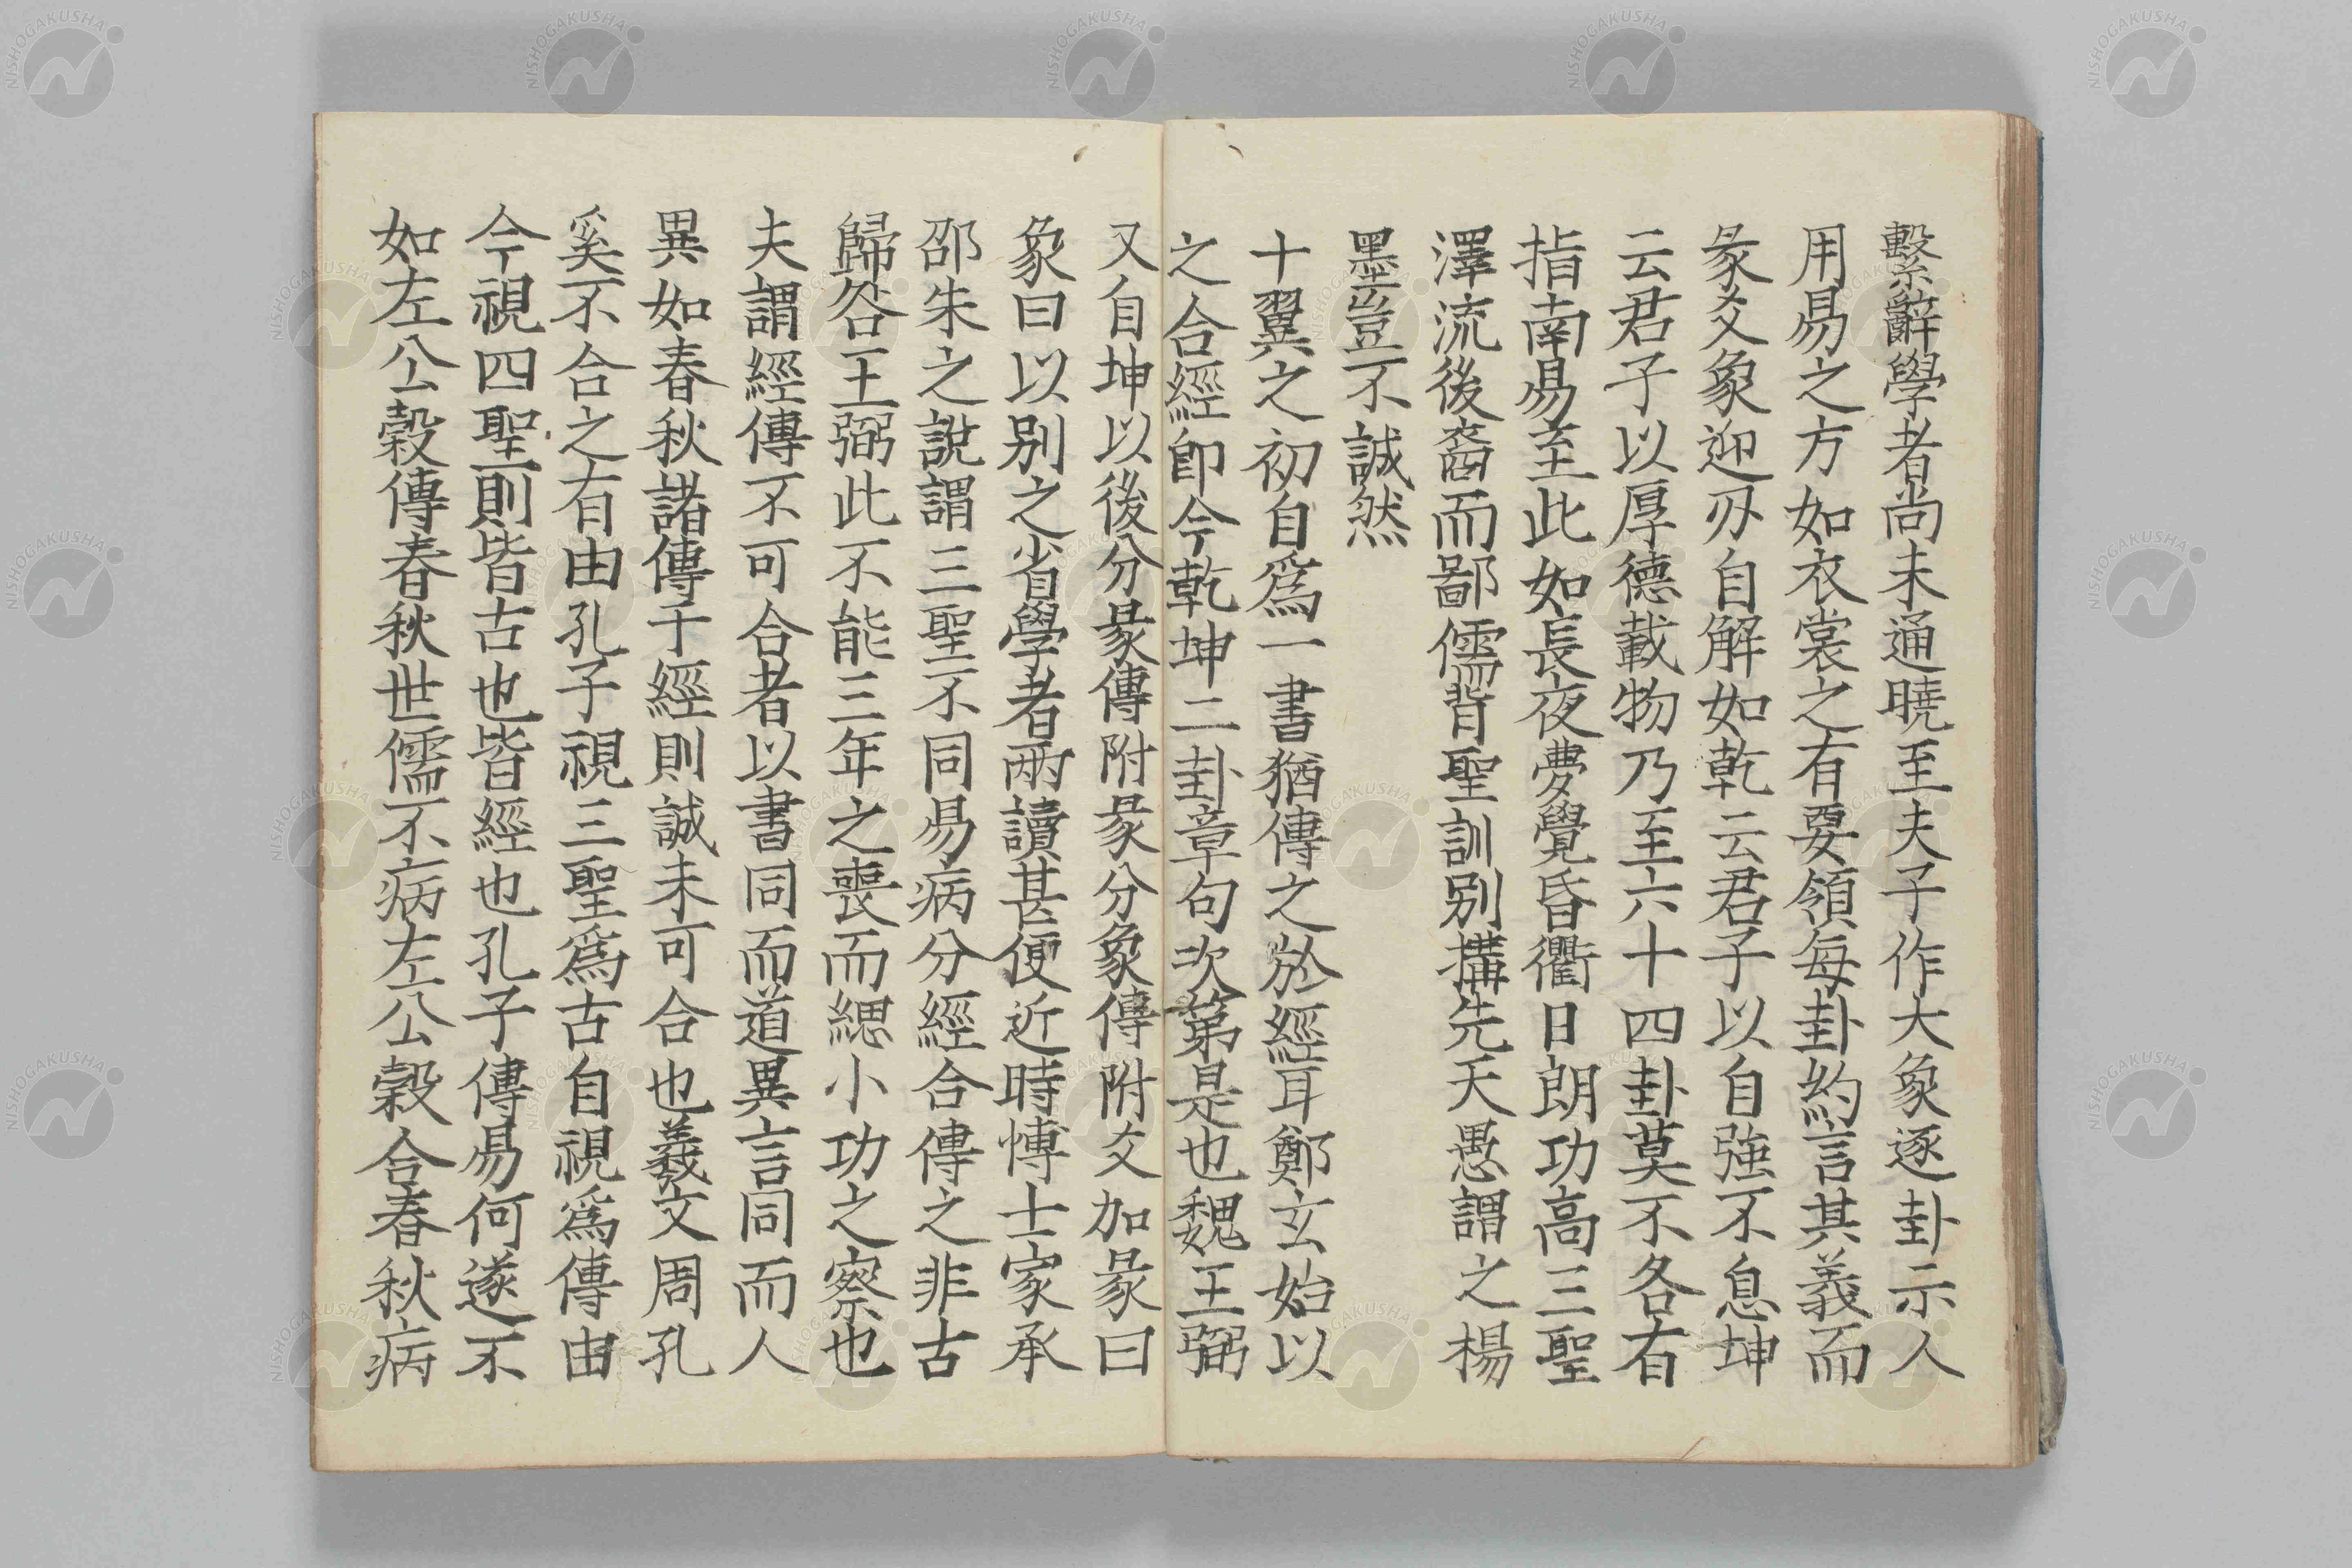 繫辭學者尚未通曉至夫子作大象逐卦示人
用易之方如衣裳之有要領每卦約言其義而
彖爻象迎刃自解如乾云君子以自強不息坤
云君子以厚德載物乃至六十四卦莫不各有
指南易至此如長夜夢覺昏衢日朗功高三聖
澤流後裔而鄙儒背聖訓別搆先天愚謂之楊
墨豈不誠然
十翼之初自爲一書猶傳之於經耳鄭玄始以
之合經卽今乾坤二卦章句次第是也魏王弼
又自坤以後分彖傳附彖分象傳附爻加彖曰
象曰以別之省學者兩讀甚便近時愽士家承
邵朱之說謂三聖不同易病分經合傳之非古
歸咎王弼此不能三年之喪而緦小功之察也
夫謂經傳不可合者以書同而道異言同而人
異如春秋諸傳于經則誠未可合也羲文周孔
奚不合之有由孔子視三聖爲古自視爲傳由
今視四聖則皆古也皆經也孔子傳易何遂不
如左公穀傳春秋世儒不病左公穀合春秋病